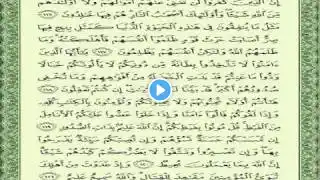 إِنَّ ٱلَّذِينَ كَفَرُوا۟ لَن تُغْنِىَ عَنْهُمْ أَمْوَٰلُهُمْ وَلَآ أَوْلَٰدُهُم
مِّنَ ٱللَّهِ شَيْـًٔا وَأُو۟لَٰٓئِكَ أَصْحَٰبُ ٱلنَّارِ هُمْ فِيهَا خَٰلِدُونَ ١١٦
مَثَلُ مَا يُنفِقُونَ فِى هَٰذِهِ ٱلْحَيَوٰةِ ٱلدُّنْيَا كَمَثَلِ رِيحٍ فِيهَا
صِرٌّ أَصَابَتْ حَرْثَ قَوْمٍ ظَلَمُوٓا۟ أَنفُسَهُمْ فَأَهْلَكَتْهُ وَمَا
ظَلَمَهُمُ ٱللَّهُ وَلَٰكِنْ أَنفُسَهُمْ يَظْلِمُونَ ١١٧ يَٰٓأَيُّهَا ٱلَّذِينَ
ءَامَنُوا۟ لَا تَتَّخِذُوا۟ بِطَانَةً مِّن دُونِكُمْ لَا يَأْلُونَكُمْ خَبَالًا
وَدُّوا۟ مَا عَنِتُّمْ قَدْ بَدَتِ ٱلْبَغْضَآءُ مِنْ أَفْوَٰهِهِمْ وَمَا تُخْفِى
صُدُورُهُمْ أَكْبَرُ قَدْ بَيَّنَّا لَكُمُ ٱلْءَايَٰتِ إِن كُنتُمْ تَعْقِلُونَ ١١٨
هَٰٓأَنتُمْ أُو۟لَآءِ تُحِبُّونَهُمْ وَلَا يُحِبُّونَكُمْ وَتُؤْمِنُونَ بِٱلْكِتَٰبِ كُلِّهِۦ
وَإِذَا لَقُوكُمْ قَالُوٓا۟ ءَامَنَّا وَإِذَا خَلَوْا۟ عَضُّوا۟ عَلَيْكُمُ ٱلْأَنَامِلَ
مِنَ ٱلْغَيْظِ قُلْ مُوتُوا۟ بِغَيْظِكُمْ إِنَّ ٱللَّهَ عَلِيمٌۢ بِذَاتِ ٱلصُّدُورِ ١١٩
إِن تَمْسَسْكُمْ حَسَنَةٌ تَسُؤْهُمْ وَإِن تُصِبْكُمْ سَيِّئَةٌ يَفْرَحُوا۟
بِهَا وَإِن تَصْبِرُوا۟ وَتَتَّقُوا۟ لَا يَضُرُّكُمْ كَيْدُهُمْ شَيْـًٔا
إِنَّ ٱللَّهَ بِمَا يَعْمَلُونَ مُحِيطٌ ١٢٠ وَإِذْ غَدَوْتَ مِنْ أَهْلِكَ
تُبَوِّئُ ٱلْمُؤْمِنِينَ مَقَٰعِدَ لِلْقِتَالِ وَٱللَّهُ سَمِيعٌ عَلِيمٌ ١٢١